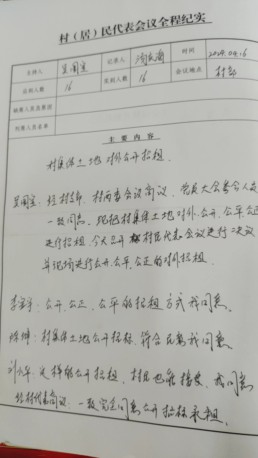 村（居）民代表会议全程纪实
主持人 吴国宝 记录人 时间 2024.04.16
应到人数 16 实到人数 16 会议地点 村部
缺席人员及事由
列席人员名单
主 要 内 容
村集体土地对外公开招租.
吴国宝：经村支部、村两委会议商议、党员大会参会人员
一致同意、现把村集体土地对外公开、公平公正
进行招租、今天召开村民代表会议进行决议
并现场进行公开公平公正的对外招租.
李 ：公开、公正、公平的招租方式我同意.
坤：村集体土地公开招标、符合民意我同意
刘小军：这样的公开招租、村民也能接受、我同意
经村代表商议、一致完全同意公开招标承租.